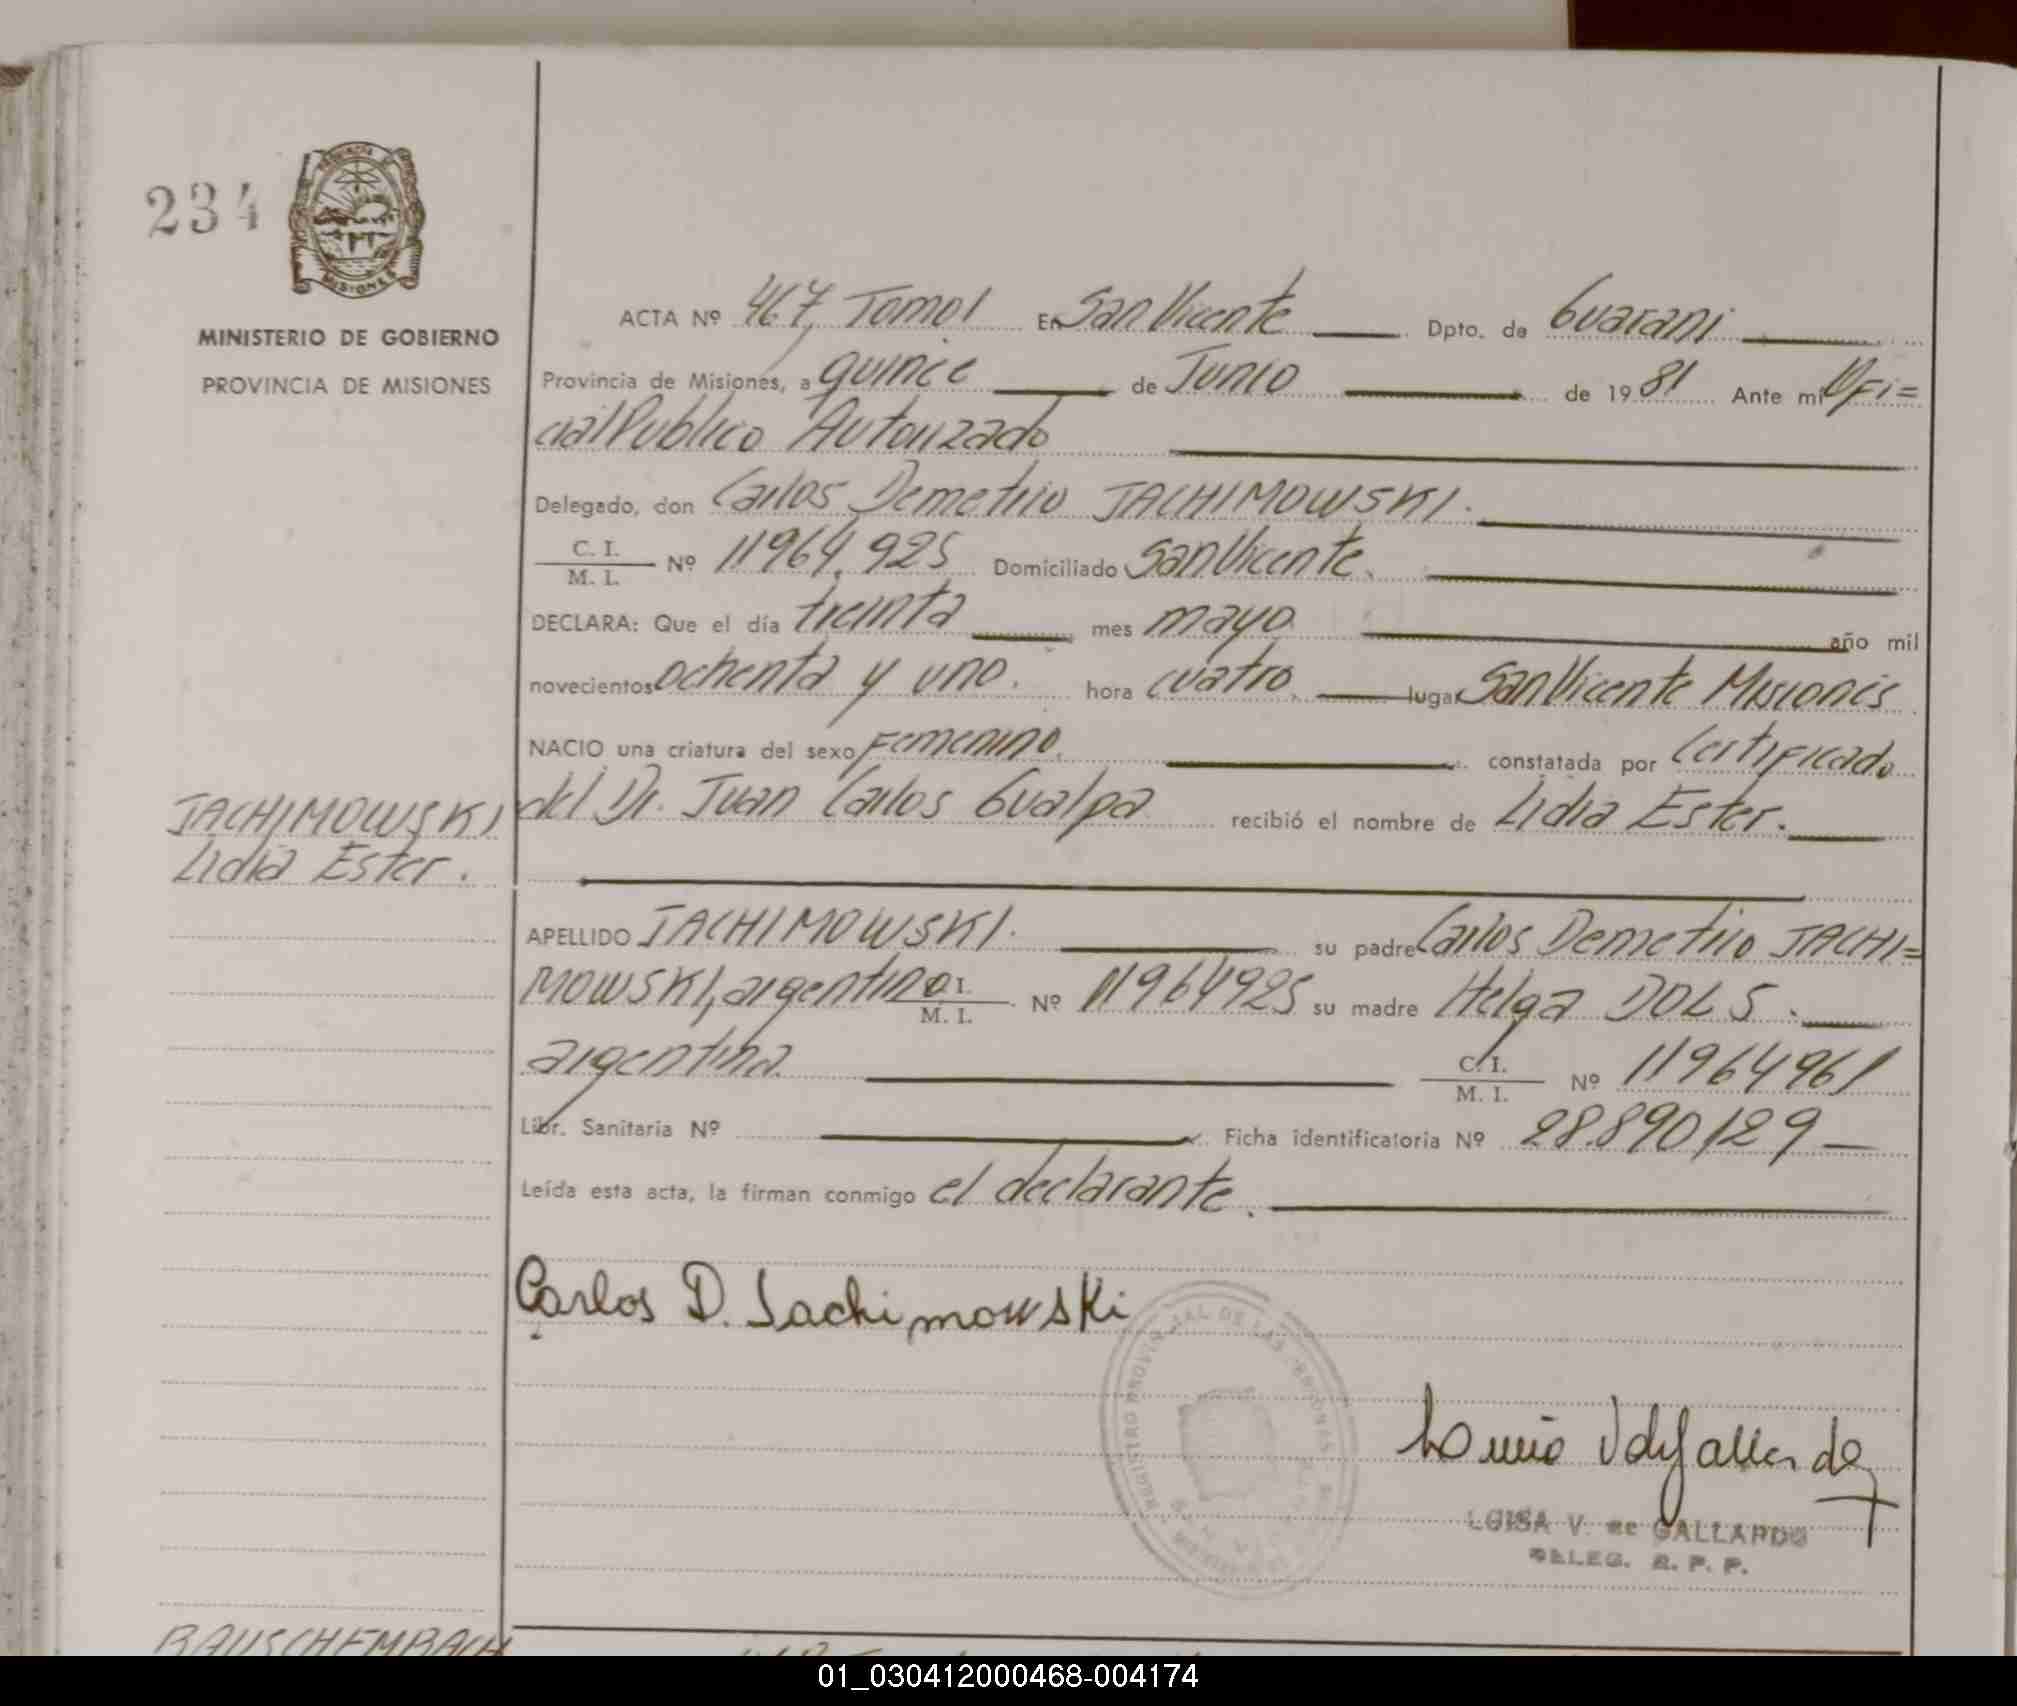 234
PROVINCIA DE
MISIONES
MINISTERIO DE GOBIERNO
PROVINCIA DE MISIONES
ACTA Nº 467, Tomo I En San Vicente Dpto. de Guarani
Provincia de Misiones, a quince de Junio de 1981 Ante mí Ofi=
cial Publico Autorizado
Delegado, don Carlos Demetrio JACHIMOWSKI.
C. I.
M. I. Nº 11964.925 Domiciliado San Vicente.
DECLARA: Que el día treinta mes mayo año mil
novecientos ochenta y uno. hora cuatro. lugar San Vicente Misiones
NACIO una criatura del sexo Femenino. constatada por Certificado
del Dr. Juan Carlos Gualpa recibió el nombre de Lidia Ester.
JACHIMOWSKI
Lidia Ester.
APELLIDO JACHIMOWSKI. su padre Carlos Demetrio JACHI=
MOWSKI, argentino C. I.
M. I. Nº 11964925 su madre Helga DOLS.
argentina C. I.
M. I. Nº 11964961
Libr. Sanitaria Nº Ficha identificatoria Nº 28.890,129
Leída esta acta, la firman conmigo el declarante.
Carlos D. Jachimowski
REGISTRO PROVINCIAL DE LAS PERSONAS
LUISA V. de GALLARDO
DELEG. R. P. P.
RAUSCHEMBACH
01_030412000468-004174